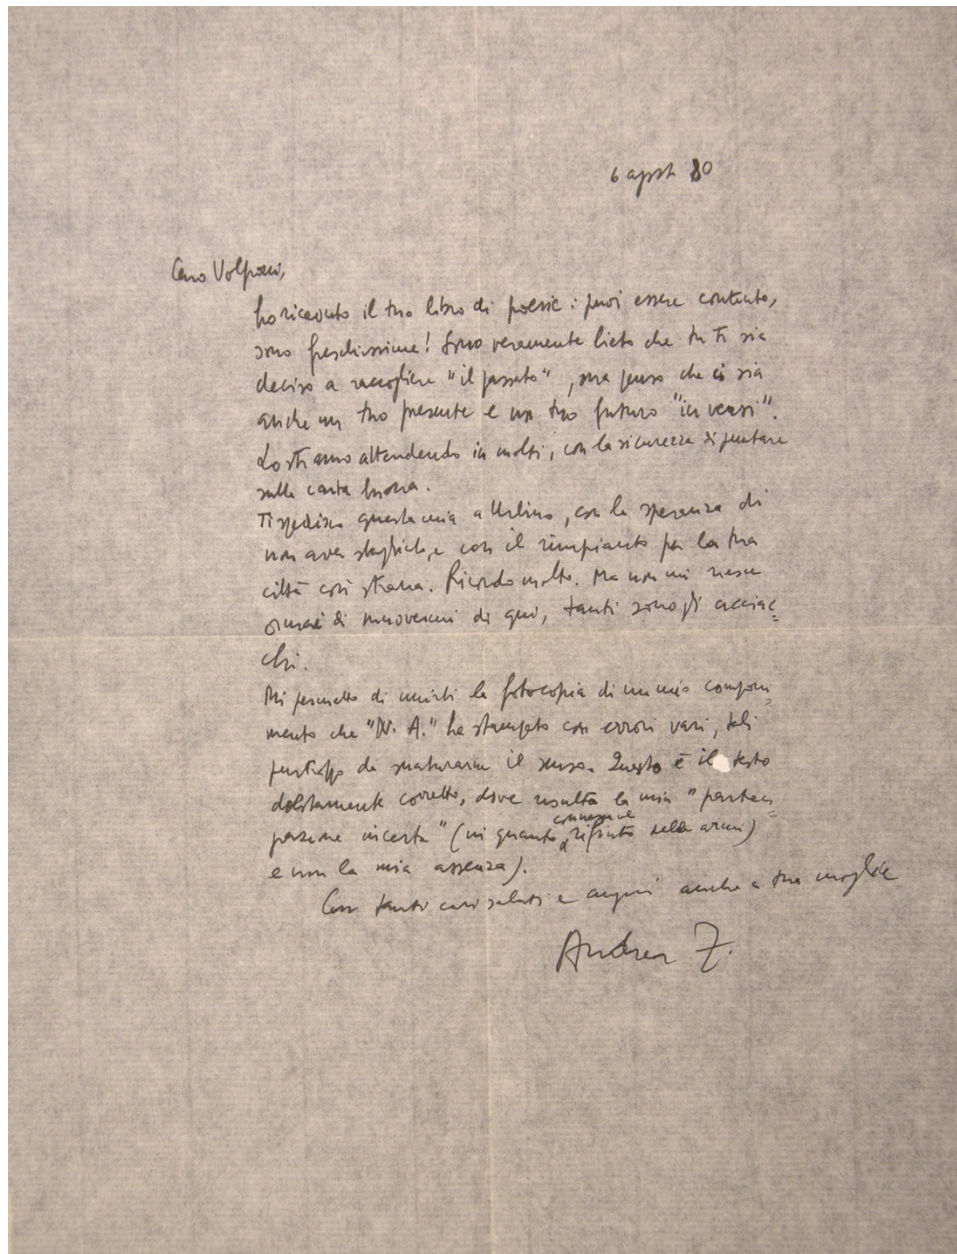 6 agosto 80
Caro Volponi,
ho ricevuto il tuo libro di poesie: puoi essere contento,
sono freschissime! Sono veramente lieto che tu ti sia
deciso a raccogliere "il passato", ma penso che ci sia
anche un tuo presente e un tuo futuro "in versi".
Lo stiamo attendendo in molti, con la sicurezza di puntare
sulla carta buona.
Ti spedisco questa mia a Urbino, con la speranza di
non aver sbagliato, e con il rimpianto per la tua
città così strana. Ricordo molto. Ma non mi riesce
ormai di muovermi di qui, tanti sono gli acciac=
chi.
Mi permetto di unirti la fotocopia di un mio componi=
mento che "N. A." ha stampato con errori vari, tali
purtroppo da snaturarne il senso. Questo è il testo
debitamente corretto, dove risulta la mia "parteci=
pazione incerta" (in quanto connessa al rifiuto delle armi)
e non la mia assenza).
Con tanti cari saluti e auguri anche a tua moglie
Andrea Z.